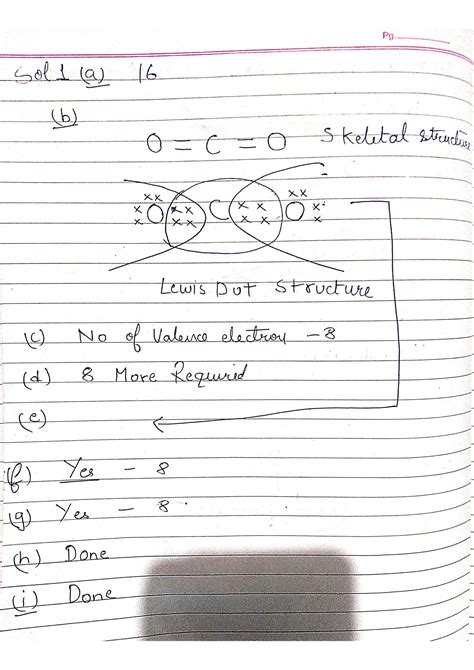 Pg.
Sol 1 (a) 16
(b)
O = C = O Skeletal structure
xx xx
x O xx C xx O x
x xx xx x
Lewis Dot Structure
(c) No of Valence electron - 8
(d) 8 More Required
(e)
(f) Yes - 8
(g) Yes - 8
(h) Done
(i) Done